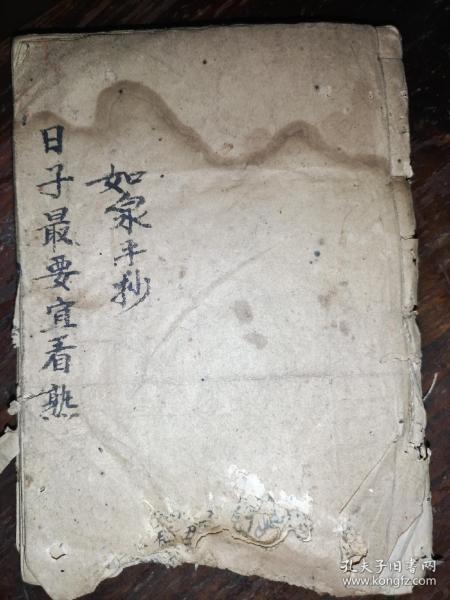 如泉手抄
日子最要宜看熟
孔夫子旧书网
www.kongfz.com